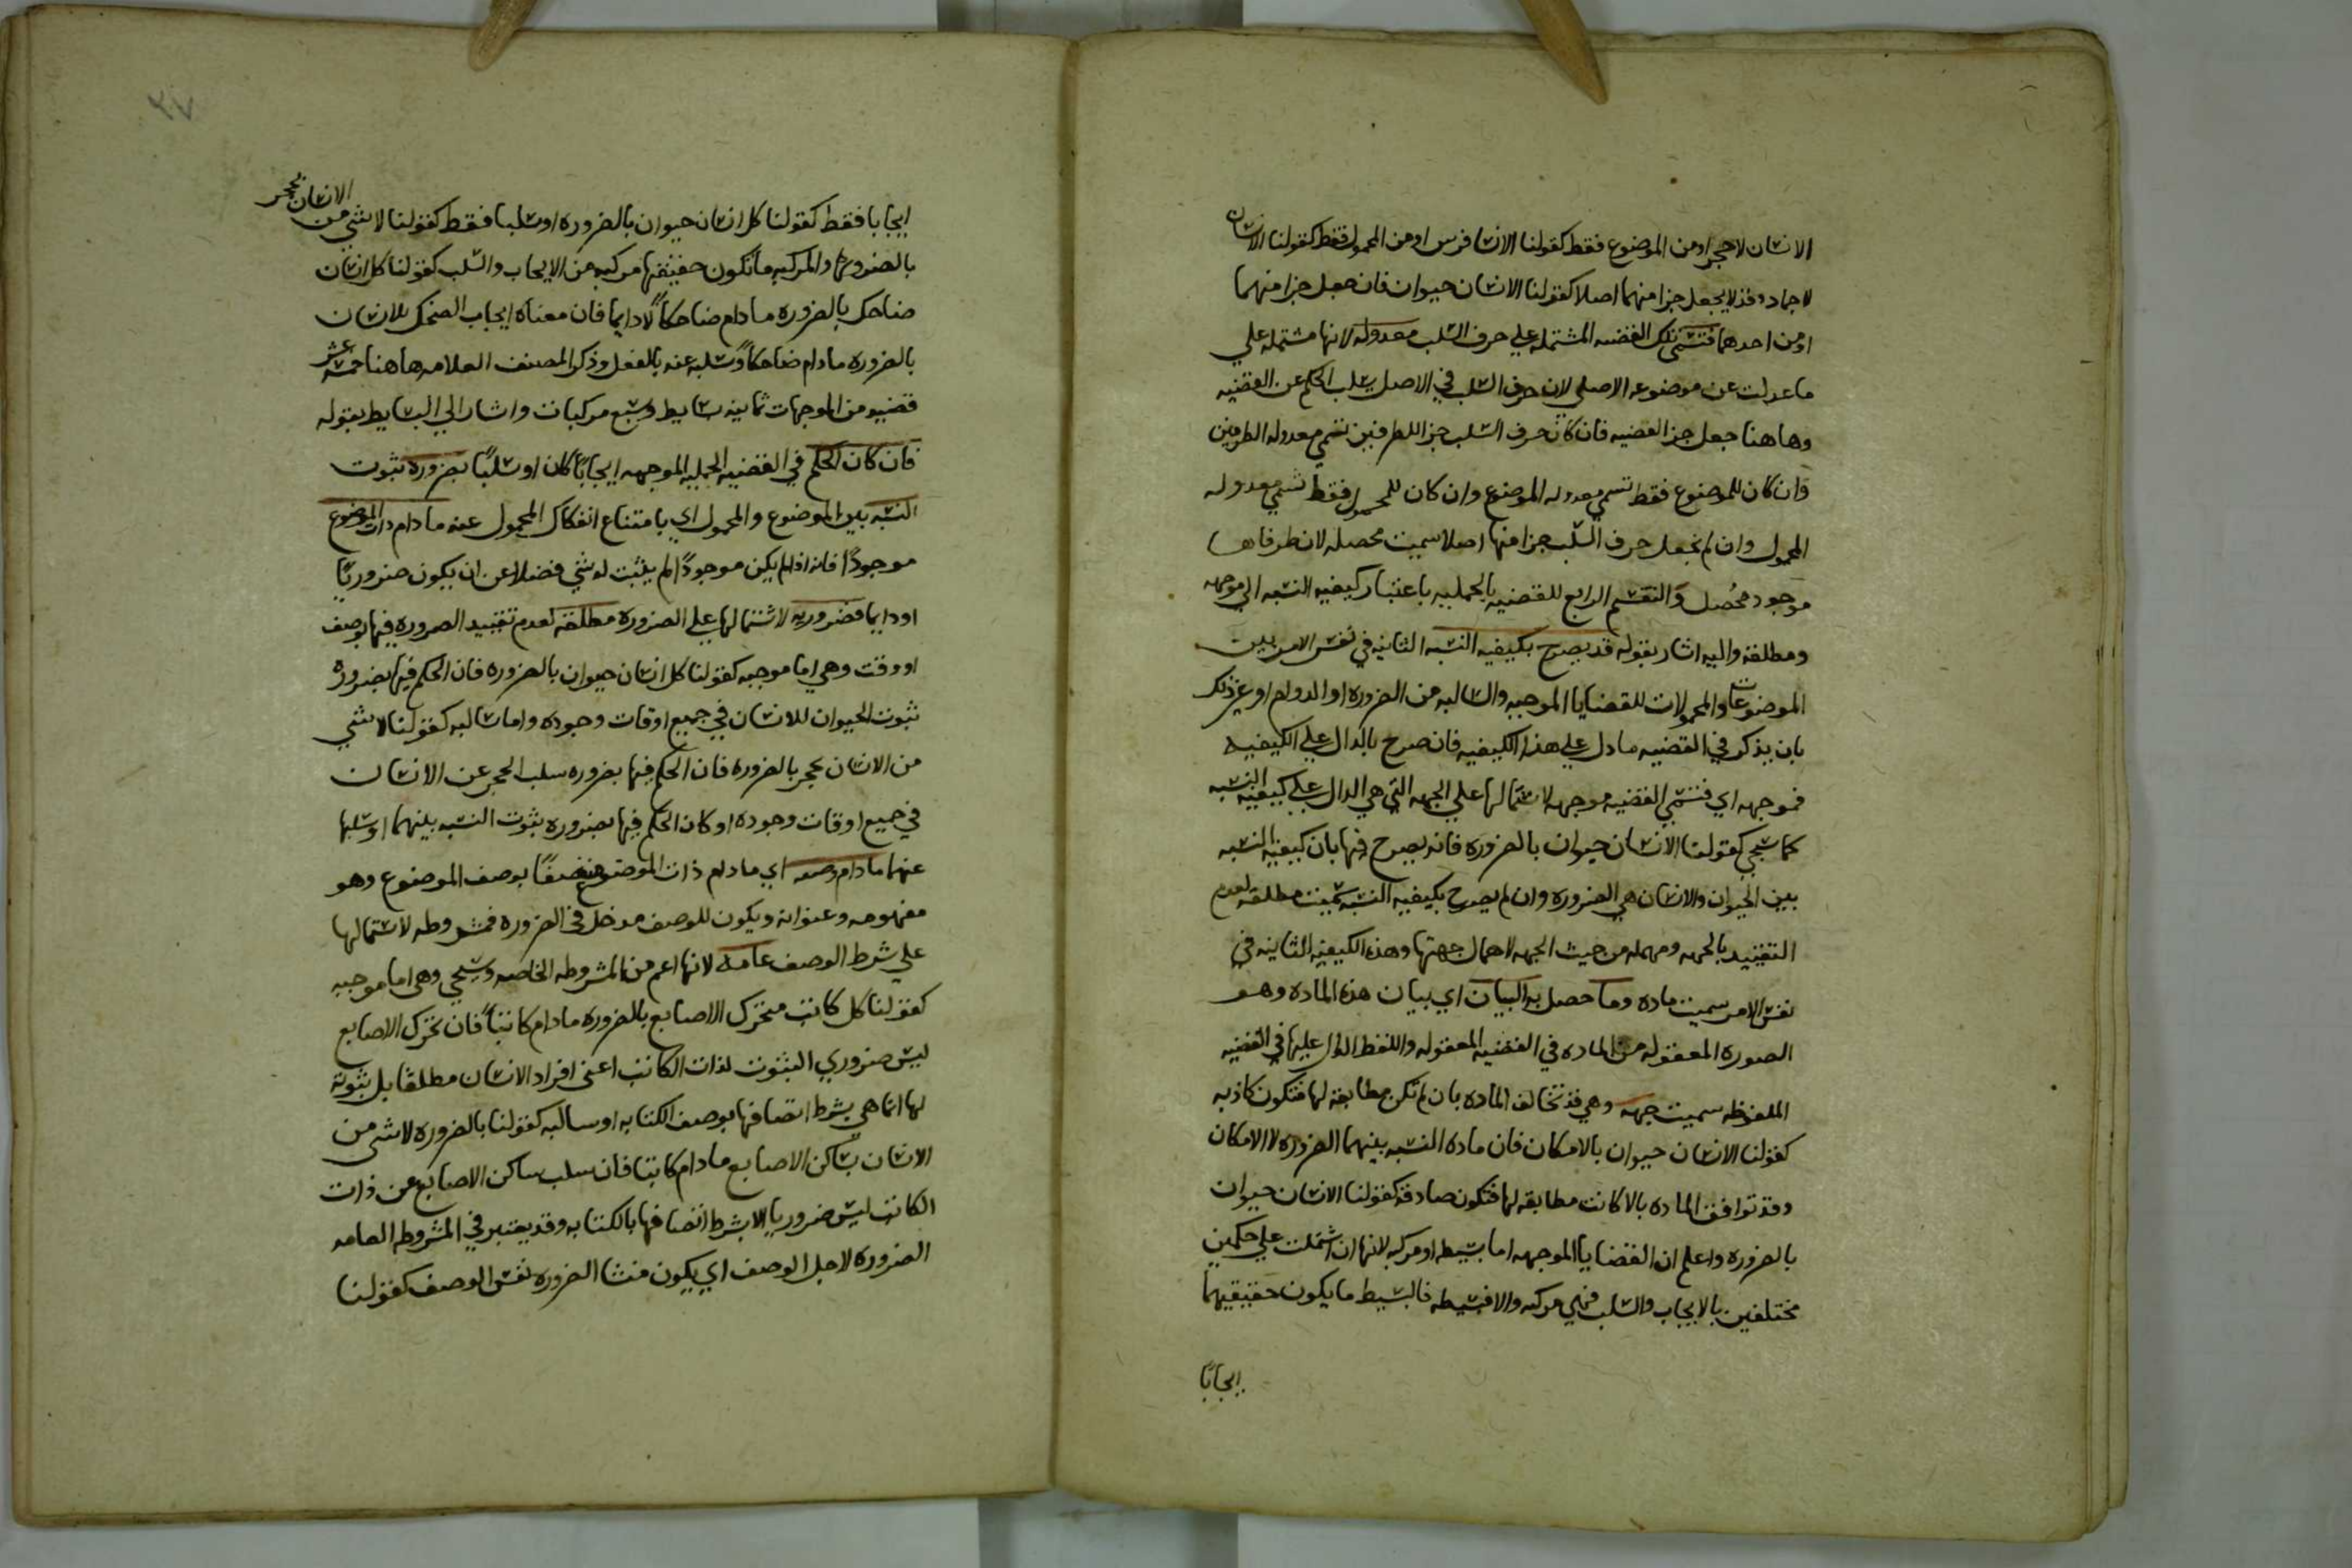 الانسان لا حجر او من الموضوع فقط كقولنا الانسا فرس او من المحمول فقط كقولنا الانسان
لا جماد وقد لا يجعل جزا منهما اصلا كقولنا الانسان حيوان فان جعل جزا منهما
او من احدهما فتسمي تلك القضيه المشتمله علي حرف السلب معدوله لانها مشتمله علي
ما عدلت عن موضوعه الاصلي لان حرف السلب في الاصل يسلب الحكم عن القضيه
وهاهنا جعل جز القضيه فان كان حرف السلب جزا للطرفين تسمي معدوله الطرفين
وان كان للموضوع فقط تسمي معدوله الموضوع وان كان للمحمول فقط تسمي معدوله
المحمول وان لم يجعل حرف السلب جزا منها اصلا سميت محصله لان طرفاها
موجود محُصل والتقسيم الرابع للقضيه بالحمليه باعتبار كيفيه النسبه الي موجهه
ومطلقة واليه اشار بقوله قد يصرح بكيفيه النسبه الثابته في نفس الامر بين
الموضوعات والمحمولات للقضايا الموجبه والسالبه من الضروره او الدوام او غير ذلك
بان يذكر في القضيه ما دل علي هذا الكيفيه فان صرح بالدال علي الكيفيه
فموجهه اي فتسمي القضيه موجهه لاشتمالها علي الجهه التي هي الدال علي كيفيه النسبه
كما سيجي كقولنا الانسان حيوان بالضروره فانه يصرح فيها بان كيفيه النسبه
بين الحيوان والانسان هي الضروره وان لم يصرح بكيفيه النسبه سميت مطلقه لعدم
التقييد بالجهه ومهمله من حيث الجهه لاهمال جهتها وهذه الكيفيه الثابته في
نفس الامر سميت ماده وما حصل به البيان اي بيان هذه الماده وهو
الصورة المعقوله من الماده في القضيه المعقوله واللفظ الدال عليها في القضيه
الملفوظه سميت جهه وهي قد تخالف الماده بان لم تكن مطابقة لها فتكون كاذبه
كقولنا الانسان حيوان بالامكان فان ماده النسبه بينهما الضروره لا الامكان
وقد توافق الماده بالا كانت مطابقه لها فتكون صادقة كقولنا الانسان حيوان
بالضروره واعلم ان القضايا الموجهه اما بسيطه او مركبه لانها ان اشتملت علي حكمين
مختلفين بالايجاب والسلب فهي مركبه والا فبسيطه فالبسيط ما يكون حقيقيهما
ايجابًا
٢٧
ايجابا فقط كقولنا كل انسان حيوان بالضروره او سلبا فقط كقولنا لا شي من الانسان بحجر
بالضروره والمركبه ما تكون حقيقتها مركبه من الايجاب والسلب كقولنا كل انسان
ضاحك بالضروره ما دام ضاحكاً لا دايما فان معناه ايجاب الضحك للانسان
بالضروره ما دام ضاحكاً وسلبه عنه بالفعل وذكر المصنف العلامه هاهنا خمسه عشر
قضيه من الموجهات ثمانيه بسايط وسبع مركبات واشار الي البسايط بقوله
فان كان الحكم في القضيه الحمليه الموجهه ايجاباً كان او سلباً بضروره ثبوت
النسبه بين الموضوع والمحمول اي بامتناع انفكاك المحمول عنه ما دام ذات الموضوع
موجوداً فانه اذا لم يكن موجوداً لم يثبت له شي فضلا عن ان يكون ضروريًا
او دايما فضروريه لاشتمالها علي الضروره مطلقة لعدم تقييد الضروره فيها بوصف
او وقت وهي اما موجبه كقولنا كل انسان حيوان بالضروره فان الحكم فيها بضروره
ثبوت الحيوان للانسان في جميع اوقات وجوده واما سالبه كقولنا لا شي
من الانسان بحجر بالضروره فان الحكم فيها بضروره سلب الحجر عن الانسان
في جميع اوقات وجوده او كان الحكم فيها بضروره ثبوت النسبه بينهما او سلبها
عنهما ما دام وصفه اي ما دام ذات الموضوع متصفاً بوصف الموضوع وهو
مفهومه وعنوانه ويكون للوصف مدخل في الضروره فمشروطه لاشتمالها
علي شرط الوصف عامه لانها اعم من المشروطه الخاصه وسيجي وهي اما موجبه
كقولنا كل كاتب متحرك الاصابع بالضروره ما دام كاتباً فان تحرك الاصابع
ليس ضروري الثبوت لذات الكاتب اعني افراد الانسان مطلقا بل ثبوته
لها انما هي بشرط اتصافها بوصف الكتابه او سالبه كقولنا بالضروره لا شي من
الانسان بساكن الاصابع ما دام كاتبا فان سلب ساكن الاصابع عن ذات
الكاتب ليس ضروريا الا بشرط اتصافها بالكتابه وقد يعتبر في المشروطه العامه
الضروره لاجل الوصف اي يكون منشا الضروره نفس الوصف كقولنا